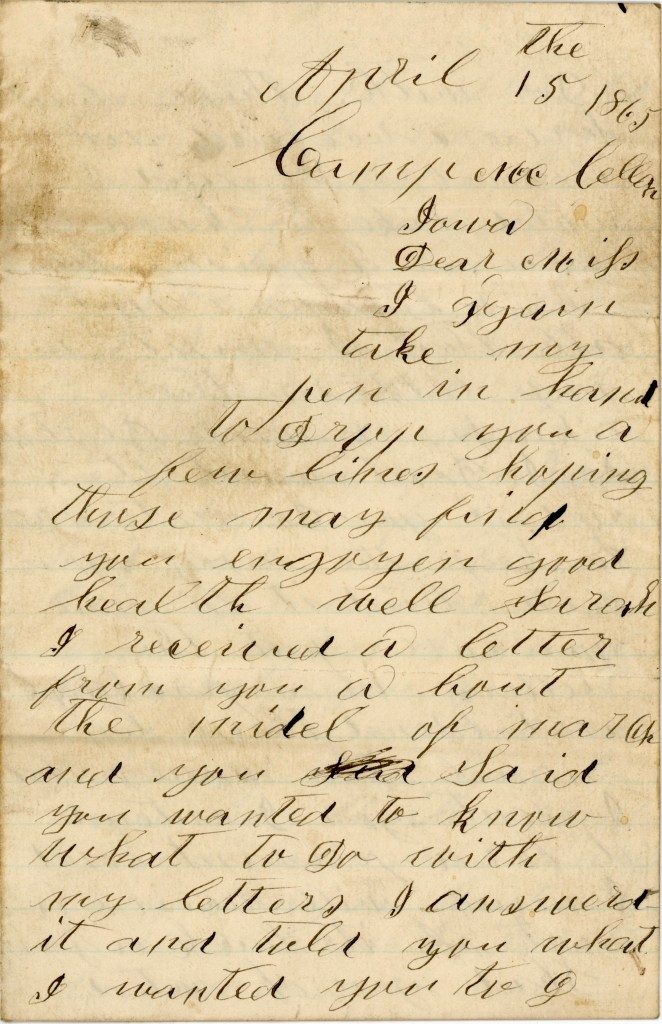 the
April 15 1865
Camp Mc Cellen
Iowa
Dear Miss
I again
take my
pen in hand
to Drop you a
few lines hoping
those may find
you engoyen good
health well Sarah
I received a letter
from you a bout
the midel of march
and you Said
you wanted to know
what to Do with
my letters I answerd
it and told you what
I wanted you to D